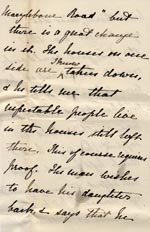 Marylebone Road" but
there is a great change
in it. The houses on one
side are taken down,
& he tells me that
respectable people live
in the houses still left
there. This of course requires
proof. The man wishes
to have his daughter
back & says that he